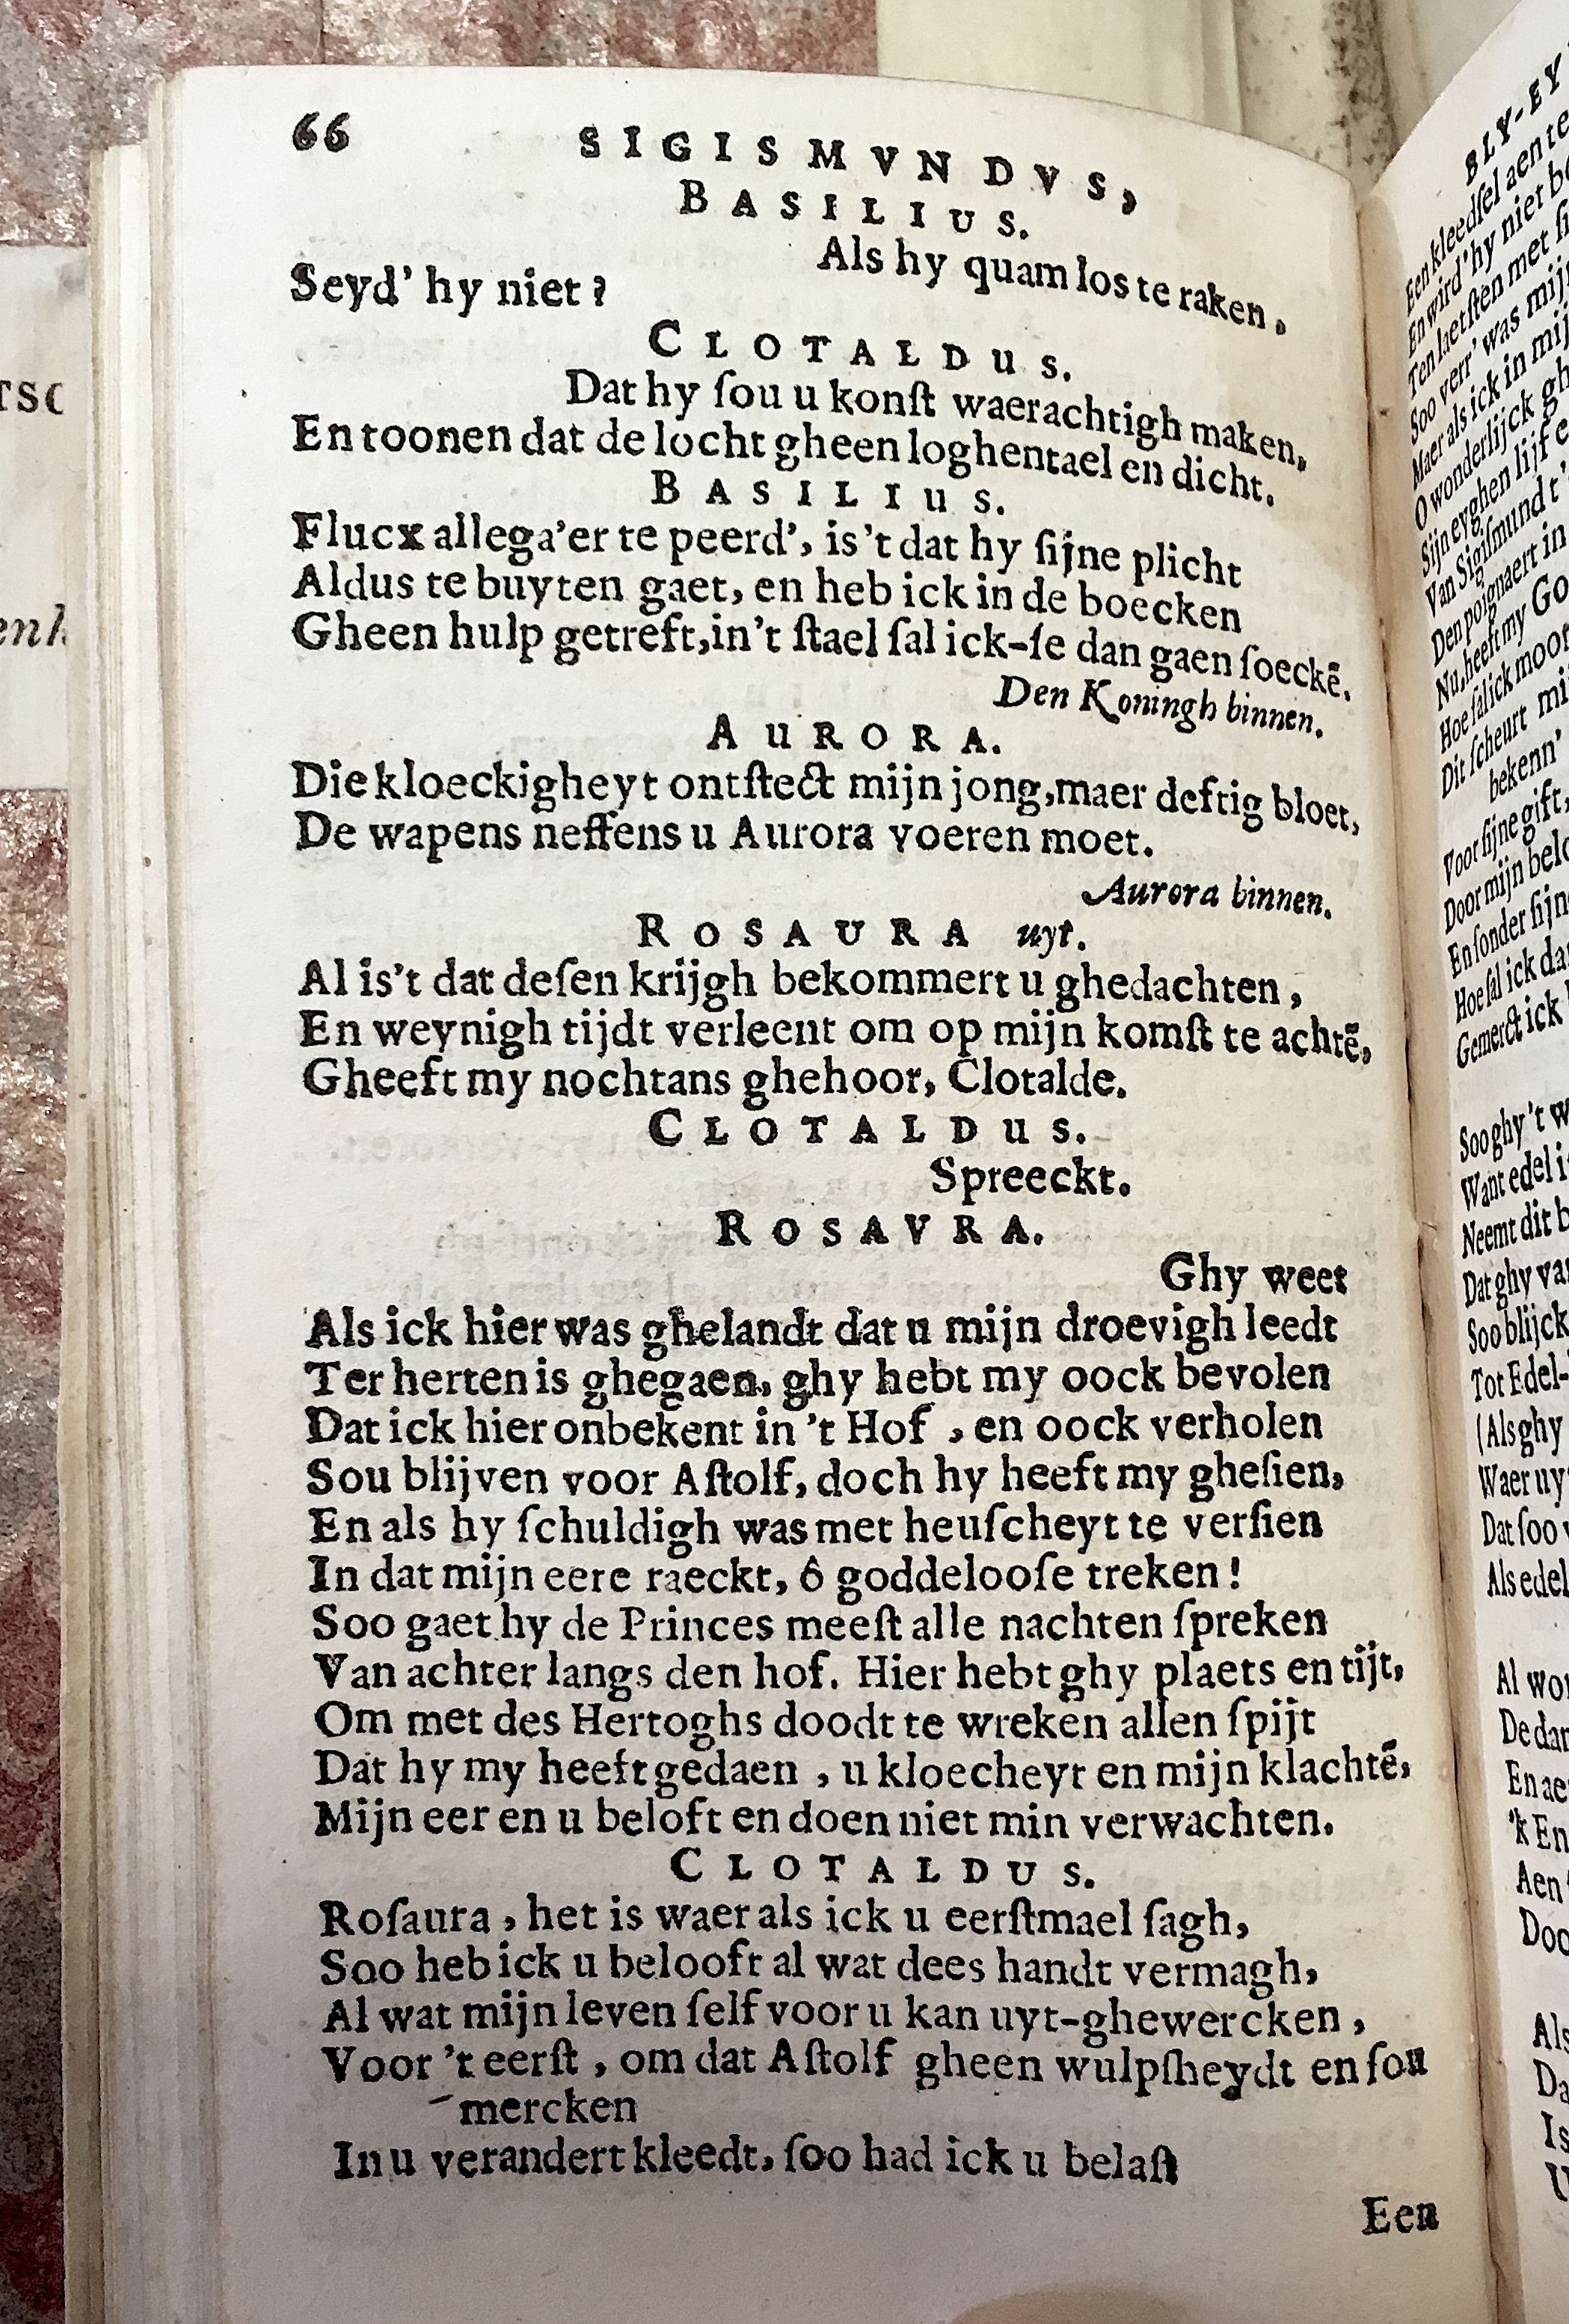 66 SIGISMVNDVS,
BASILIUS.
Als hy quam los te raken,
Seyd' hy niet?
CLOTALDUS.
Dat hy ſou u konſt waerachtigh maken,
En toonen dat de locht gheen loghentael en dicht.
BASILIUS.
Flucx allega'er te peerd', is't dat hy ſijne plicht
Aldus te buyten gaet, en heb ick in de boecken
Gheen hulp getreft, in't ſtael ſal ick-ſe dan gaen ſoeckē.
Den Koningh binnen.
AURORA.
Die kloeckigheyt ontſtect mijn jong, maer deftig bloet,
De wapens neffens u Aurora voeren moet.
Aurora binnen.
ROSAURA uyt.
Al is't dat deſen krijgh bekommert u ghedachten,
En weynigh tijdt verleent om op mijn komſt te achtē,
Gheeft my nochtans ghehoor, Clotalde.
CLOTALDUS.
Spreeckt.
ROSAVRA.
Ghy weet
Als ick hier was ghelandt dat u mijn droevigh leedt
Ter herten is ghegaen, ghy hebt my oock bevolen
Dat ick hier onbekent in 't Hof, en oock verholen
Sou blijven voor Aſtolf, doch hy heeft my gheſien,
En als hy ſchuldigh was met heuſcheyt te verſien
In dat mijn eere raeckt, ô goddelooſe treken!
Soo gaet hy de Princes meeſt alle nachten ſpreken
Van achter langs den hof. Hier hebt ghy plaets en tijt,
Om met des Hertoghs doodt te wreken allen ſpijt
Dat hy my heeft gedaen, u kloecheyt en mijn klachtē,
Mijn eer en u beloft en doen niet min verwachten.
CLOTALDUS.
Roſaura, het is waer als ick u eerſtmael ſagh,
Soo heb ick u belooft al wat dees handt vermagh,
Al wat mijn leven ſelf voor u kan uyt-ghewercken,
Voor 't eerſt, om dat Aſtolf gheen wulpſheydt en ſou
mercken
In u verandert kleedt, ſoo had ick u belaſt
Een
BLY-EY
Een kleedſel aen te
En wird' hy niet
Ten laetſten met
Soo verr' was mij
Maer als ick in mij
O wonderlijck gh
Sijn eyghen lijf e
Van Sigiſmund t'
Den poignaert in
Nu, heeft my Go
Hoe ſal ick moor
Dit ſcheurt mi
bekenn'
Voor ſijne gift,
Door mijn belo
En ſonder ſijn
Hoe ſal ick da
Gemerct ick
Soo ghy 't w
Want edel i
Neemt dit b
Dat ghy va
Soo blijck
Tot Edel-
(Als ghy
Waer uy
Dat ſoo
Als edel
Al wo
De dan
En ae
'k En
Aen
Doo
Als
Da
Is